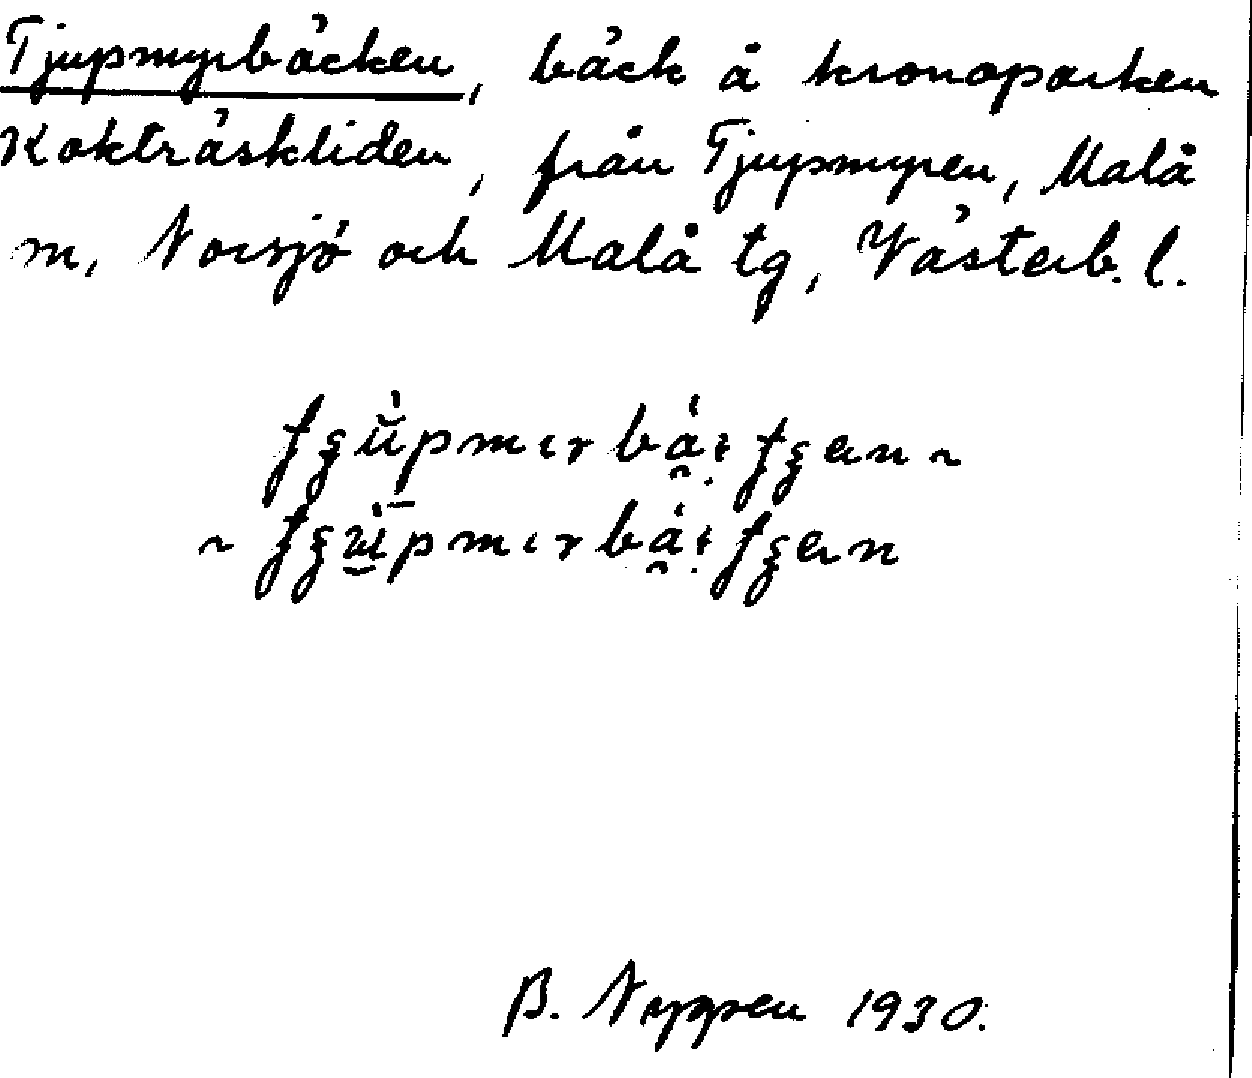 Tjupmyrbäcken, bäck å kronoparken
Kokträskliden, från Tjupmyren, Malå
m, Norsjö och Malå tg, Västerb. l.
B. Nygren 1930.